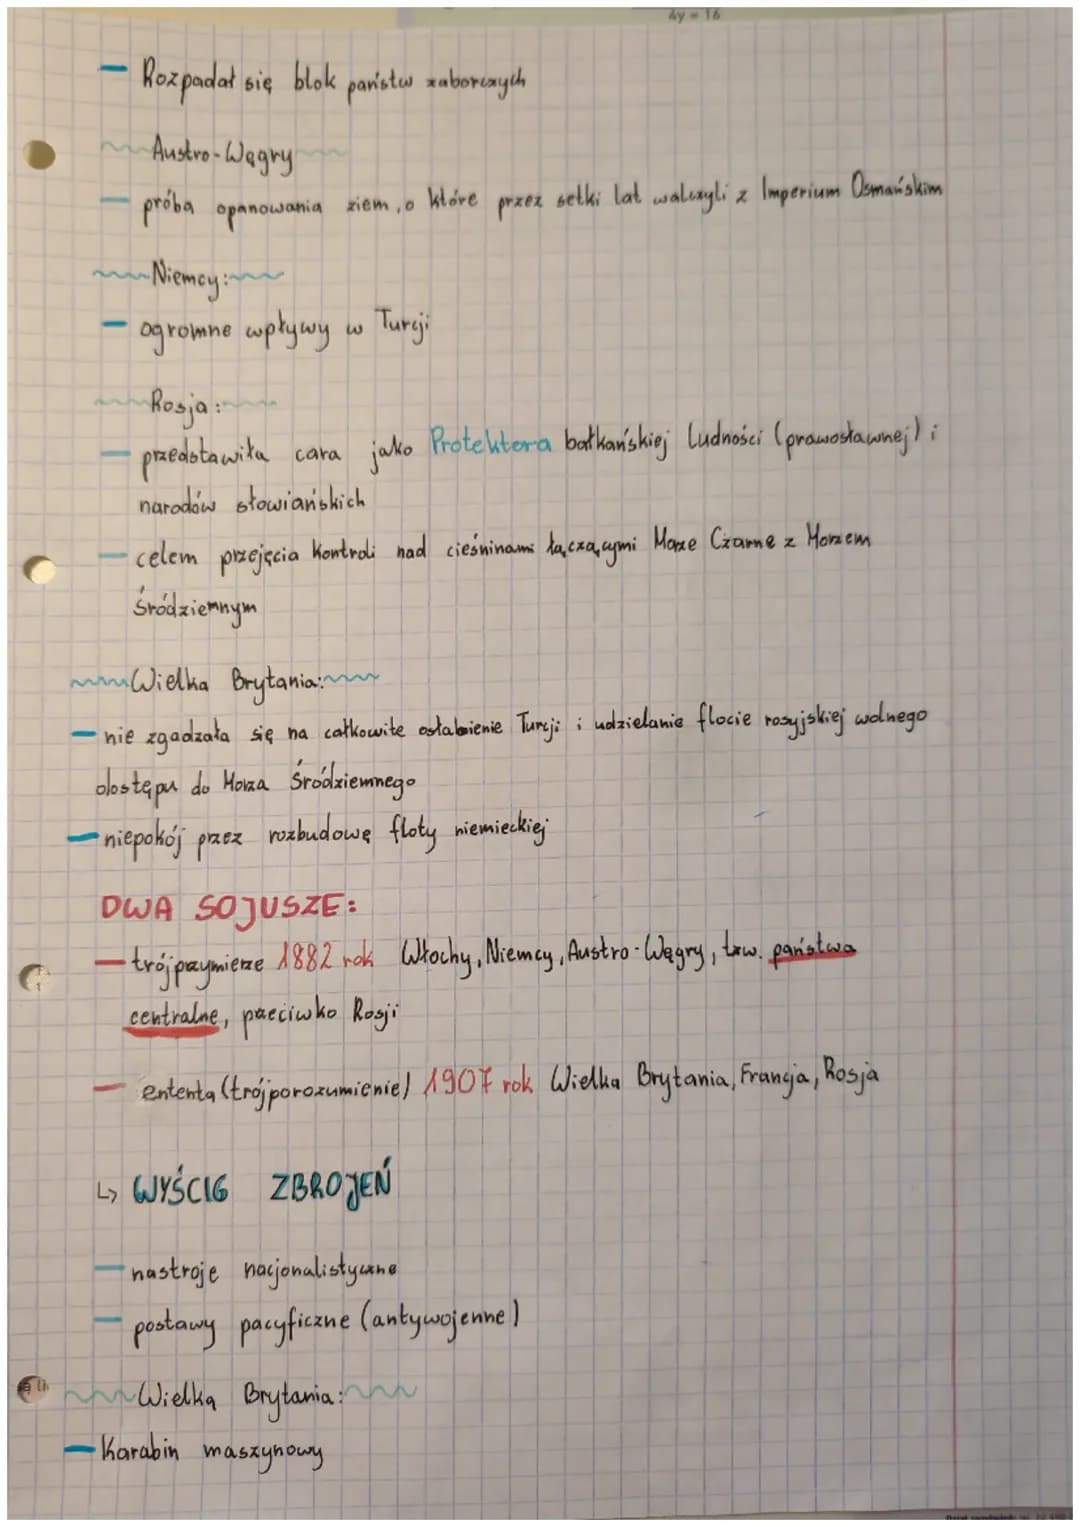 4y = 16
— Rozpadał się blok państw zaborczych
Austro-Węgry
— próba opanowania ziem, o które przez setki lat walczyli z Imperium Osmańskim
Niemcy:
— ogromne wpływy w Turcji
Rosja:
— przedstawiła cara jako Protektora bałkańskiej ludności (prawosławnej) i
narodów słowiańskich
— celem przejęcia kontroli nad cieśninami łączącymi Morze Czarne z Morzem
Śródziemnym
Wielka Brytania:
— nie zgadzała się na całkowite osłabienie Turcji i udzielanie flocie rosyjskiej wolnego
dostępu do Morza Śródziemnego
— niepokój przez rozbudowę floty niemieckiej
DWA SOJUSZE:
— trójprzymierze 1882 rok Włochy, Niemcy, Austro-Węgry, tzw. państwa
centralne, przeciwko Rosji
— ententa (trójporozumienie) 1907 rok Wielka Brytania, Francja, Rosja
↳ WYŚCIG ZBROJEŃ
— nastroje nacjonalistyczne
— postawy pacyficzne (antywojenne)
Wielka Brytania:
— Karabin maszynowy